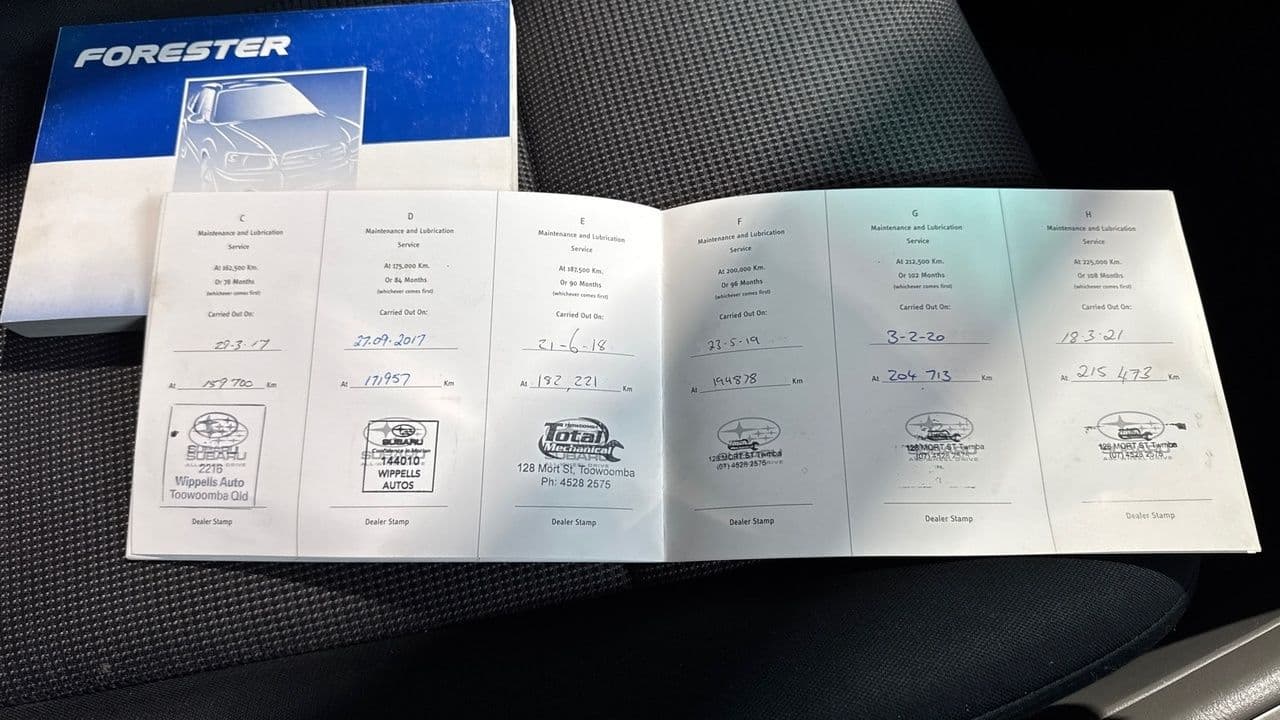 FORESTER
C
Maintenance and Lubrication
Service
At 162,500 Km.
Or 78 Months
(whichever comes first)
Carried Out On:
29-3-17
At 159 700 Km
SUBARU
2216
Wippells Auto
Toowoomba Qld
Dealer Stamp
D
Maintenance and Lubrication
Service
At 175,000 Km.
Or 84 Months
(whichever comes first)
Carried Out On:
27.09.2017
At 171957 Km
SUBARU
Confidence in Motion
144010
WIPPELLS
AUTOS
Dealer Stamp
E
Maintenance and Lubrication
Service
At 187,500 Km.
Or 90 Months
(whichever comes first)
Carried Out On:
21-6-18
At 182,221 Km
Total
Mechanical
128 Mort St, Toowoomba
Ph: 4528 2575
Dealer Stamp
F
Maintenance and Lubrication
Service
At 200,000 Km.
Or 96 Months
(whichever comes first)
Carried Out On:
23-5-19
At 194878 Km
128 MORT ST Twmba
(07) 4528 2575
Dealer Stamp
G
Maintenance and Lubrication
Service
At 212,500 Km.
Or 102 Months
(whichever comes first)
Carried Out On:
3-2-20
At 204 713 Km
128 MORT ST Twmba
(07) 4528 2575
Dealer Stamp
H
Maintenance and Lubrication
Service
At 225,000 Km.
Or 108 Months
(whichever comes first)
Carried Out On:
18-3-21
At 215 473 Km
128 MORT ST Twmba
(07) 4528 2575
Dealer Stamp